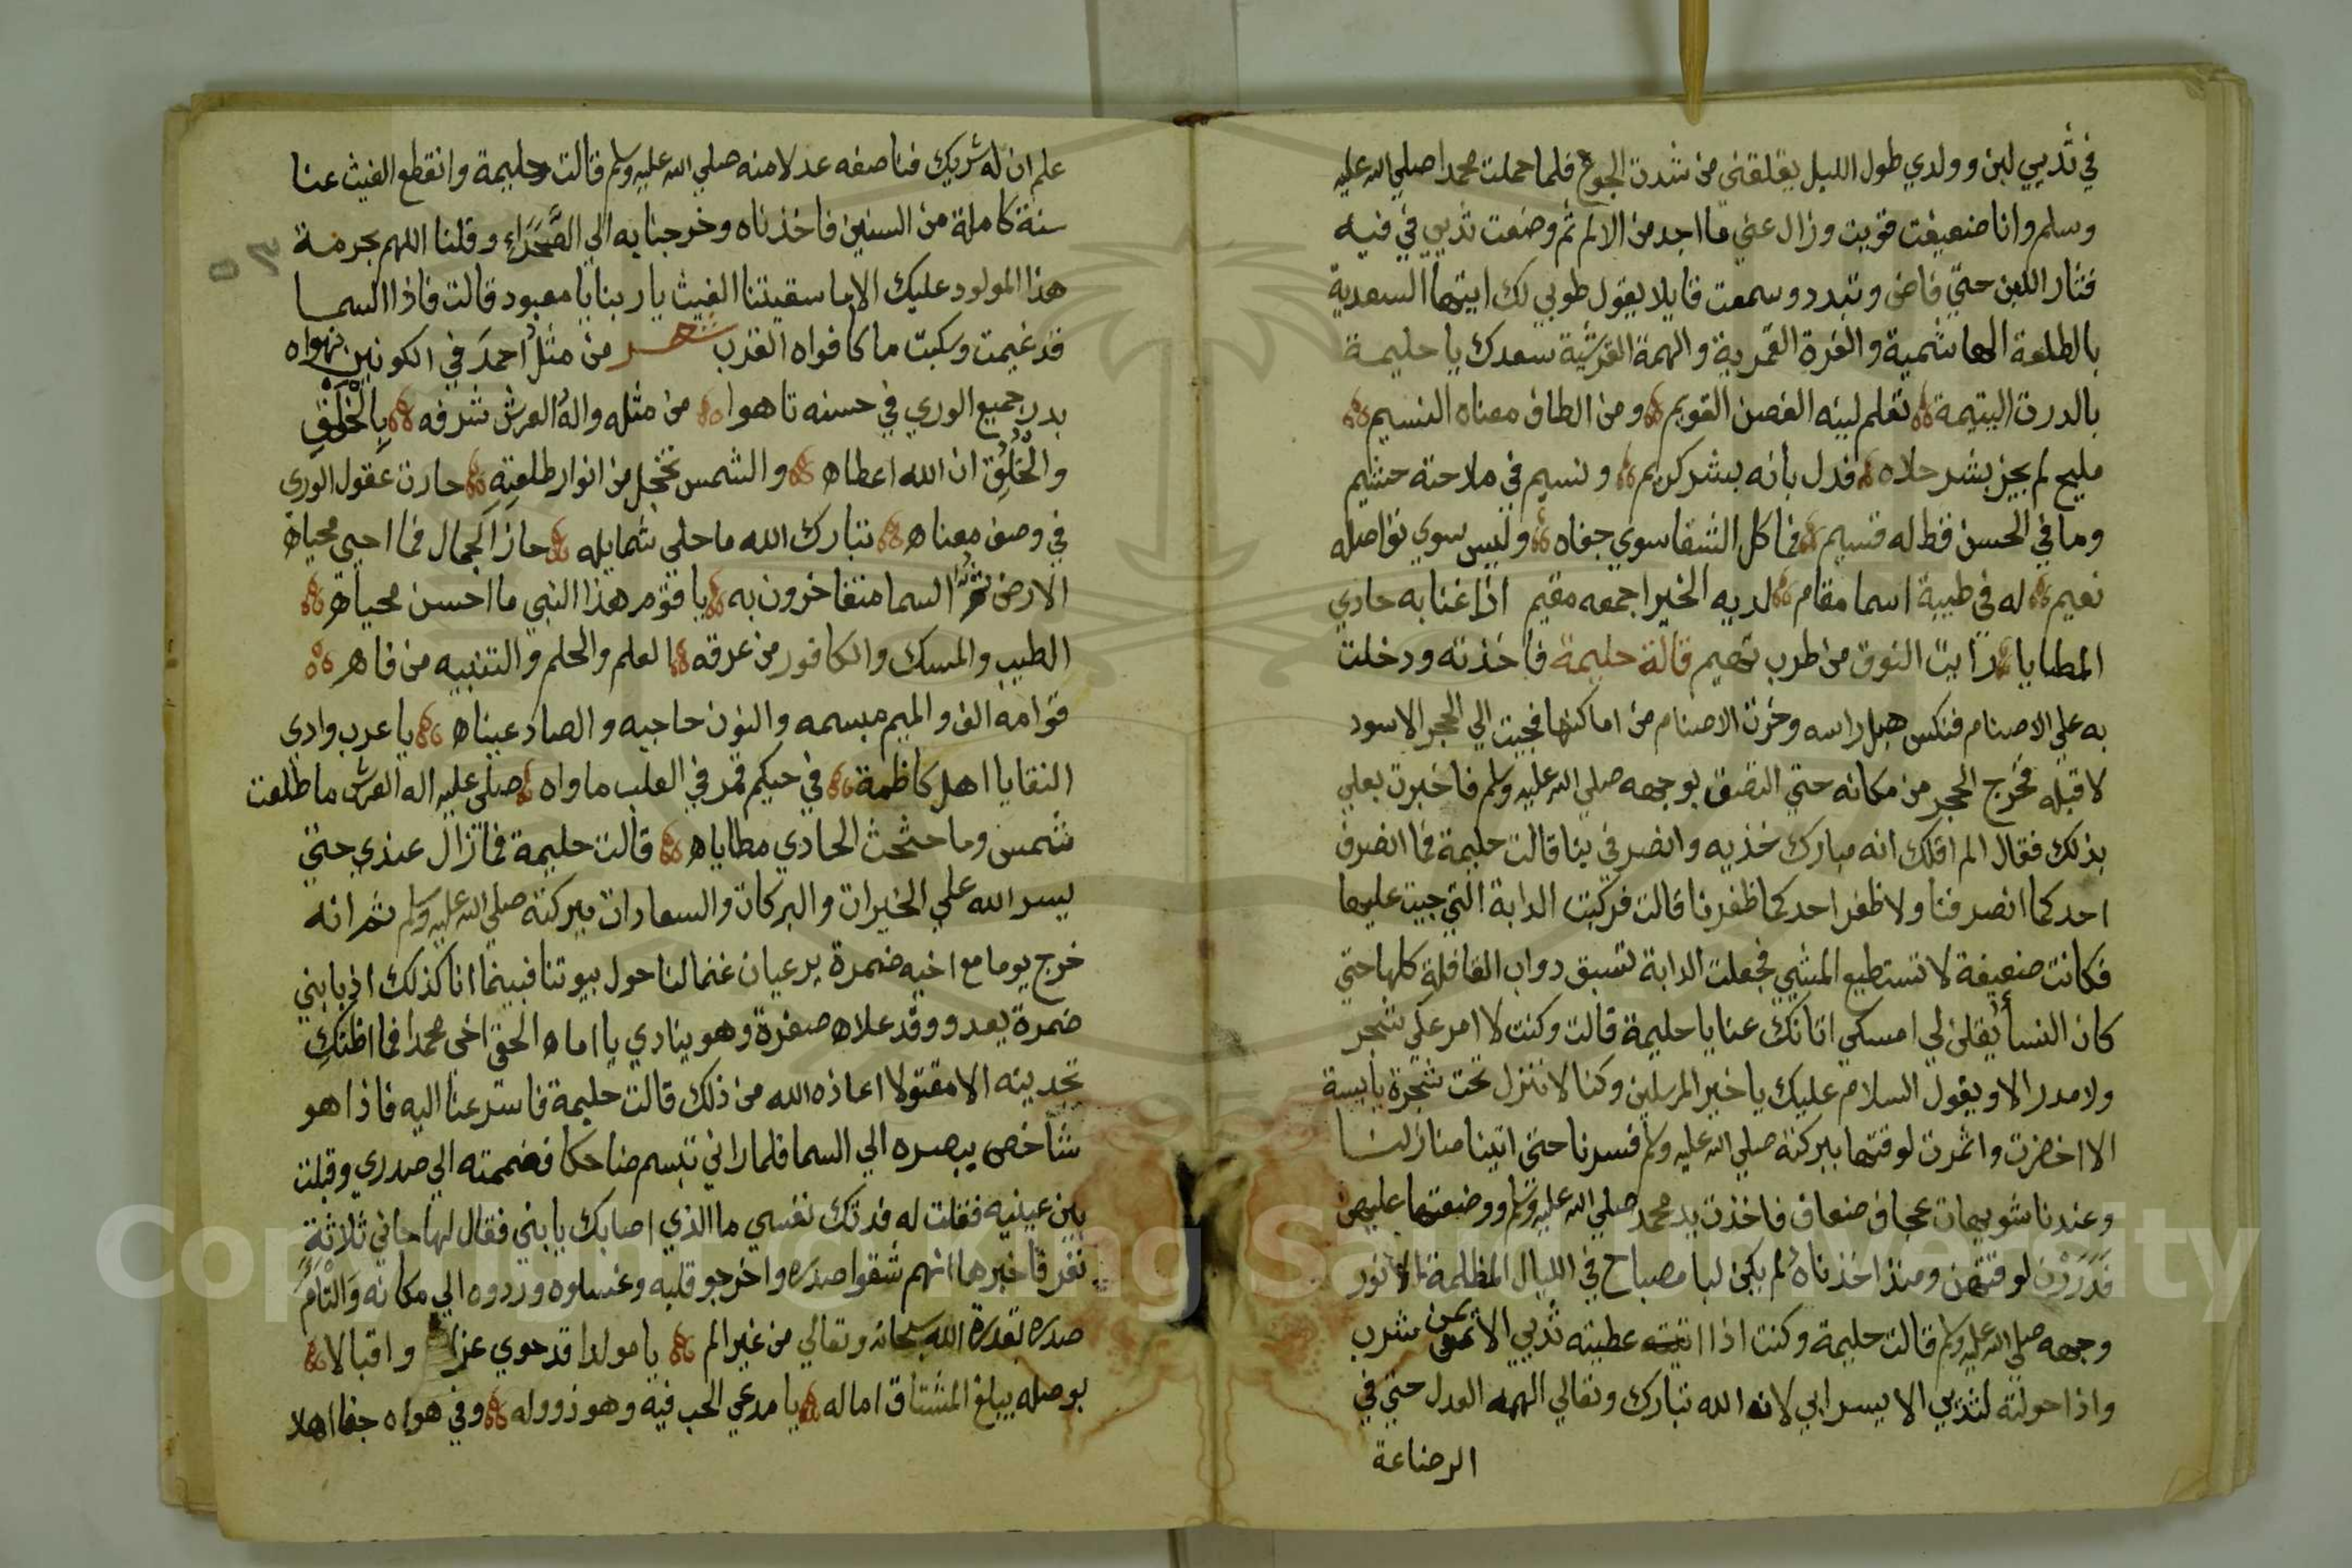 في ثديي لبن وولدي طول الليل يقلقني من شدت الجوع فلما حملت محمدا صلي الله عليه
وسلم وانا ضعيفت قويت وزال عني ما اجد من الالم ثم وضعت ثديي في فيه
فثار اللبن حتي فاض وتبدد وسمعت قايلا يقول طوبي لك ايتها السعدية
بالطلعة الهاشمية والغرة القمرية والهمة القرشية سعدك يا حليمة
بالدرت اليتيمة تعلم لينه الغصن القويم ومن الطاف معناه النسيم
مليح لم يجز بشر حلاه فدل بانه بشر كريم ونسيم في ملاحته حشيم
وما في الحسن قط له قسيم فما كل الشقا سوي جفاه وليس سوي تواصله
نعيم له في طيبة اسما مقام لديه الخير اجمعه مقيم اذا غنا به حادي
المطايا رايت النوق من طرب تهيم قالة حليمة فاخذته ودخلت
به علي الاصنام فنكس هبل راسه وخرت الاصنام من اماكنها فجيت الي الحجر الاسود
لاقبله فخرج الحجر من مكانه حتي التصق بوجهه صلي الله عليه وسلم فاخبرت بعلي
بذلك فقال الم اقلك انه مبارك خذيه وانصرفي بنا قالت حليمة فما انصرف
احد كما انصرفنا ولا ظفر احد كما ظفرنا قالت فركبت الدابة التي جيت عليها
فكانت ضعيفة لا تستطيع المشي فجعلت الدابة تسبق دواب القافلة كلها حتي
كان النسا يقلن لي امسكي اتانك عنا يا حليمة قالت وكنت لا امر علي شجر
ولا مدر الا ويقول السلام عليك يا خير المرسلين وكنا لا ننزل تحت شجرة يابسة
الا اخضرت واثمرت لوقتها ببركته صلي الله عليه وسلم فسرنا حتي اتينا منازلنا
وعندنا شويهات عجاف ضعاف فاخذت يد محمد صلي الله عليه وسلم ووضعتها عليهن
فدررن لوقتهن ومنذ اخذناه لم يكن لنا مصباح في الليال المظلمة الا نور
وجهه صلي الله عليه وسلم قالت حليمة وكنت اذا عطيته ثديي الايمن شرب
واذا حولته لثديي الايسر ابي لانه الله تبارك وتعالي الهمه العدل حتي في
الرضاعة
علم ان له شريك فناصفه عدلا منه صلي الله عليه وسلم قالت حليمة وانقطع الغيث عنا
سنة كاملة من السنين فاخذناه وخرجنا به الي الصَّحَرَاءِ وقلنا اللهم بحرمة
هذا المولود عليك الا ما سقيتنا الغيث يا ربنا يا معبود قالت فاذا السما
قد غيمت وسكبت ما كافواه القرب شعر من مثل احمد في الكونين نهواه
بدر جميع الوري في حسنه تاهوا من مثله واله العرش شرفه بالخَلْقِ
والخُلُقِ ان الله اعطاه والشمس تخجل من انوار طلعته حارت عقول الوري
في وصف معناه تبارك الله ما حلي شمايله حاز الجمال فما احيي محياه
الارض السما متفاخرون به يا قوم هذا النبي ما احسن محياه
الطيب والمسك والكافور من عرقه العلم والحلم والتنبيه من فاه
قوامه الف والميم مبسمه والنون حاجبه والصاد عيناه يا عرب وادي
النقا يا اهل كاظمة في حيكم قمر في القلب ماواه صلي عليه اله العرش ما طلعت
شمس وما حثحث الحادي مطاياه قالت حليمة فما زال عندي حتي
يسر الله علي الخيرات والبركات والسعادات ببركته صلي الله عليه وسلم ثم انه
خرج يوما مع اخيه ضمرة يرعيان غنما لنا حول بيوتنا فبينما انا كذلك اذ بابني
ضمرة يعدو وقد علاه صفرة وهو ينادي يا اماه الحق اخي محمدا فما اظنكِ
تجدينه الا مقتولا اعاذه الله من ذلك قالت حليمة فاسترعنا اليه فاذا هو
شاخص ببصره الي السما فلما راني تبسم ضاحكا فضممته الي صدري وقبلت
بين عينيه فقلت له فدتك نفسي ما الذي اصابك يا بني فقال لها جاني ثلاثةِ
نفر فاخبرها انهم شقوا صدره واخرجو قلبه وغسلوه وردوه الي مكانه وَالْتَاَمَ
صدره بقدرة الله سبحانه وتعالي من غير الم يا مولدا قد حوي عزا واقبالا
بوصله يبلغ المشتاق اماله يا مدعي الحب فيه وهو ذو وله وفي هواه جفا اهلا
Copyright © King Saud University